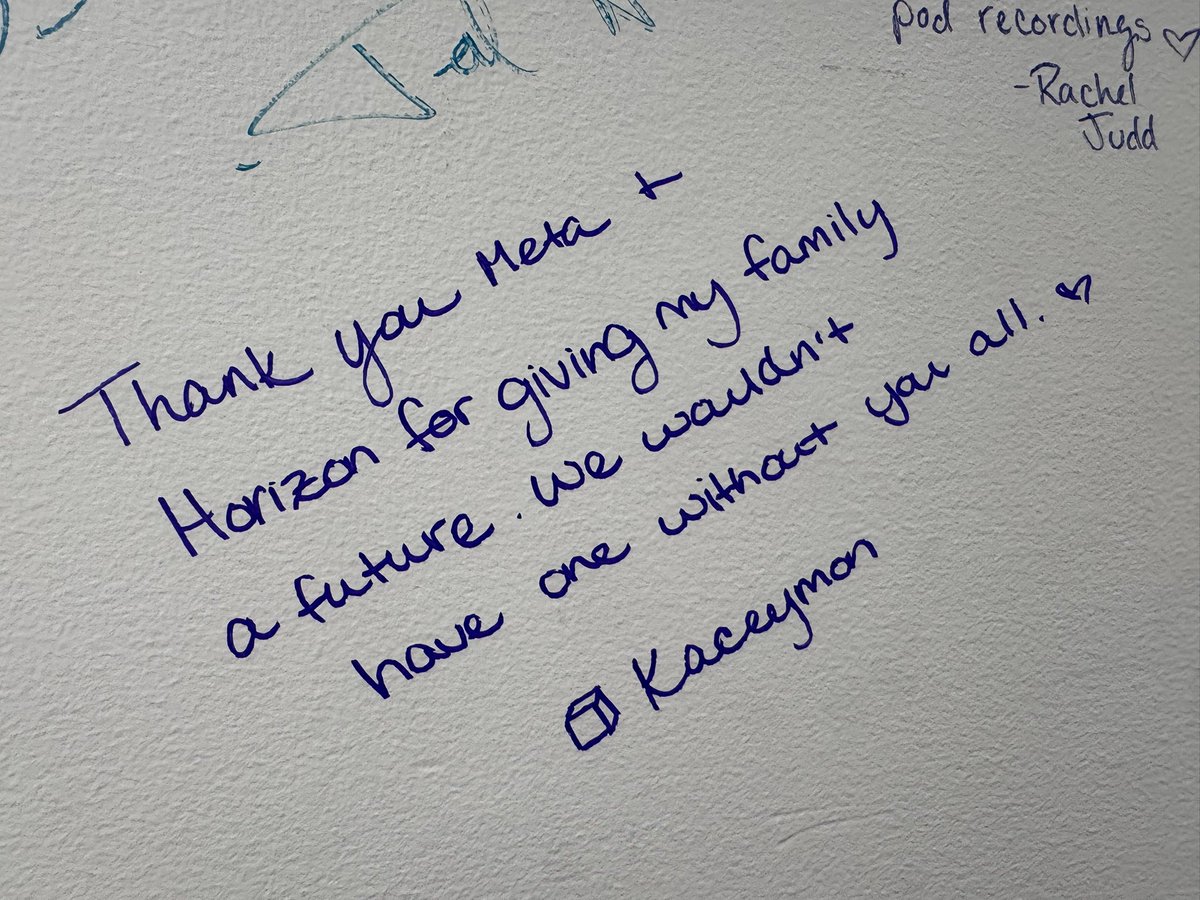 pod recordings
-Rachel
Judd
Thank you Meta +
Horizon for giving my family
a future. We wouldn't
have one without you all.
Kaceymon